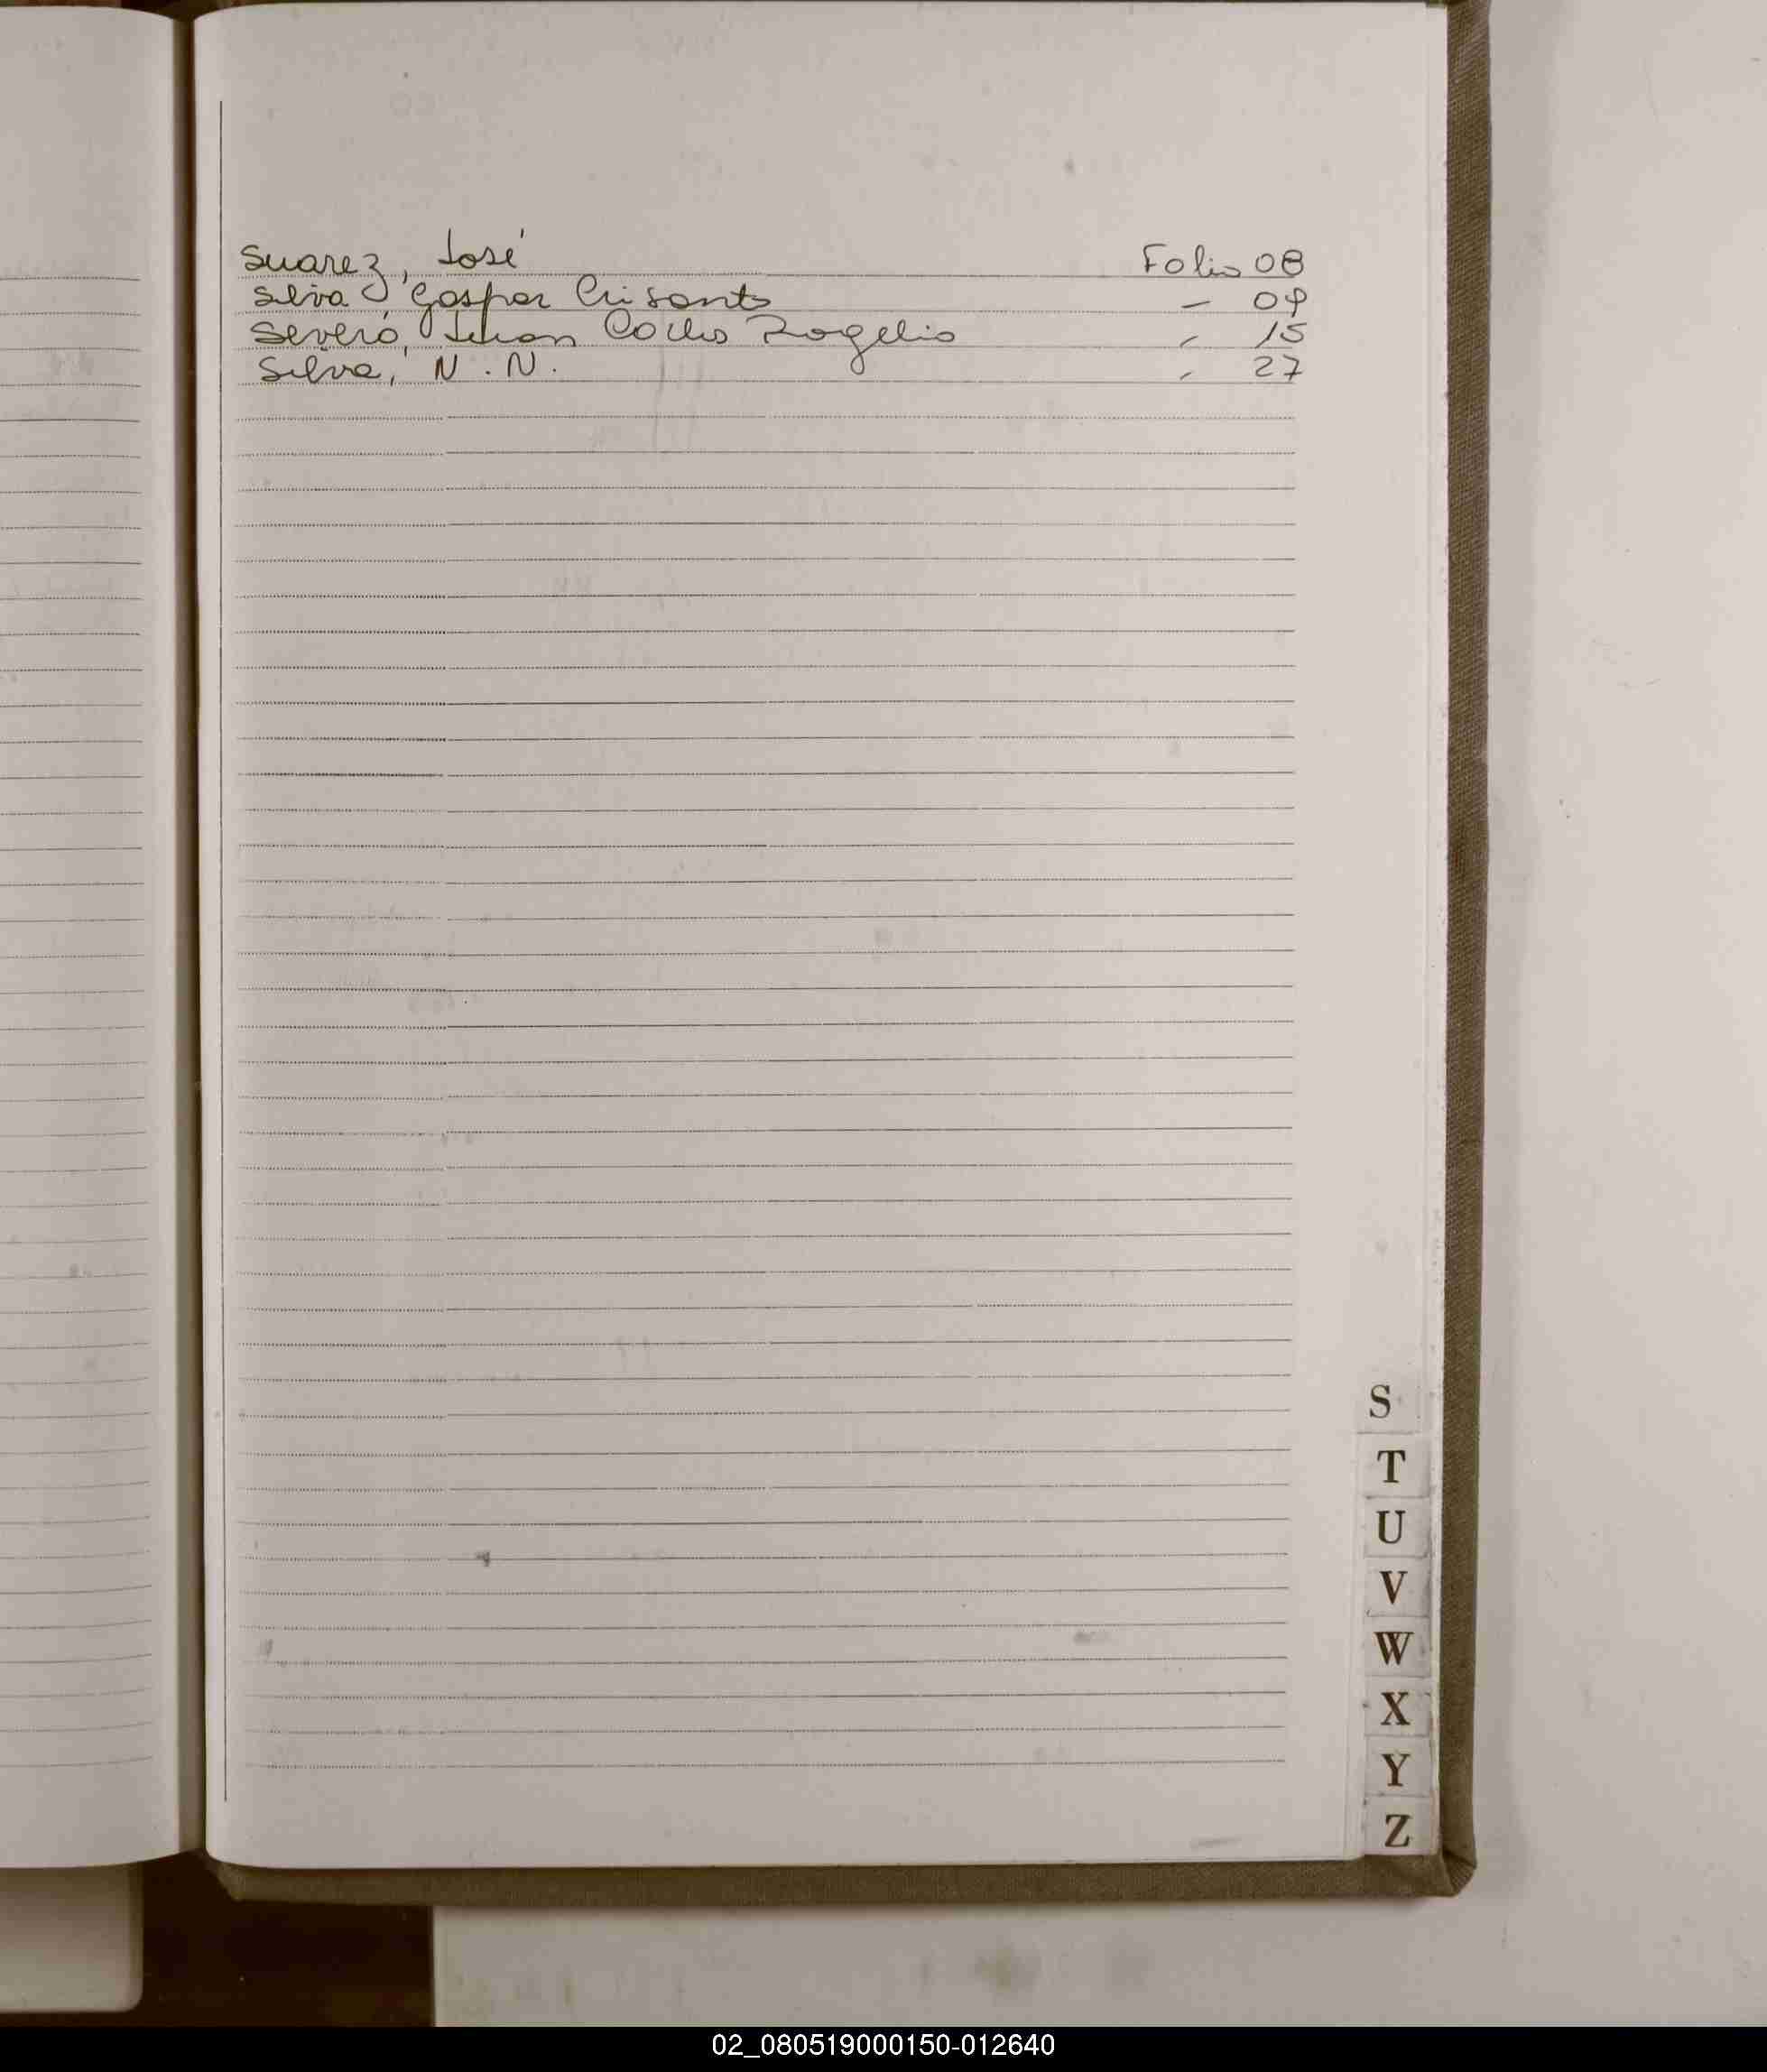 Suarez, José Folio 08
Silva, Gaspar Crisanto – 09
Severo, Rogelio - 15
Silva, N.N. - 27
S
T
U
V
W
X
Y
Z
02_080519000150-012640